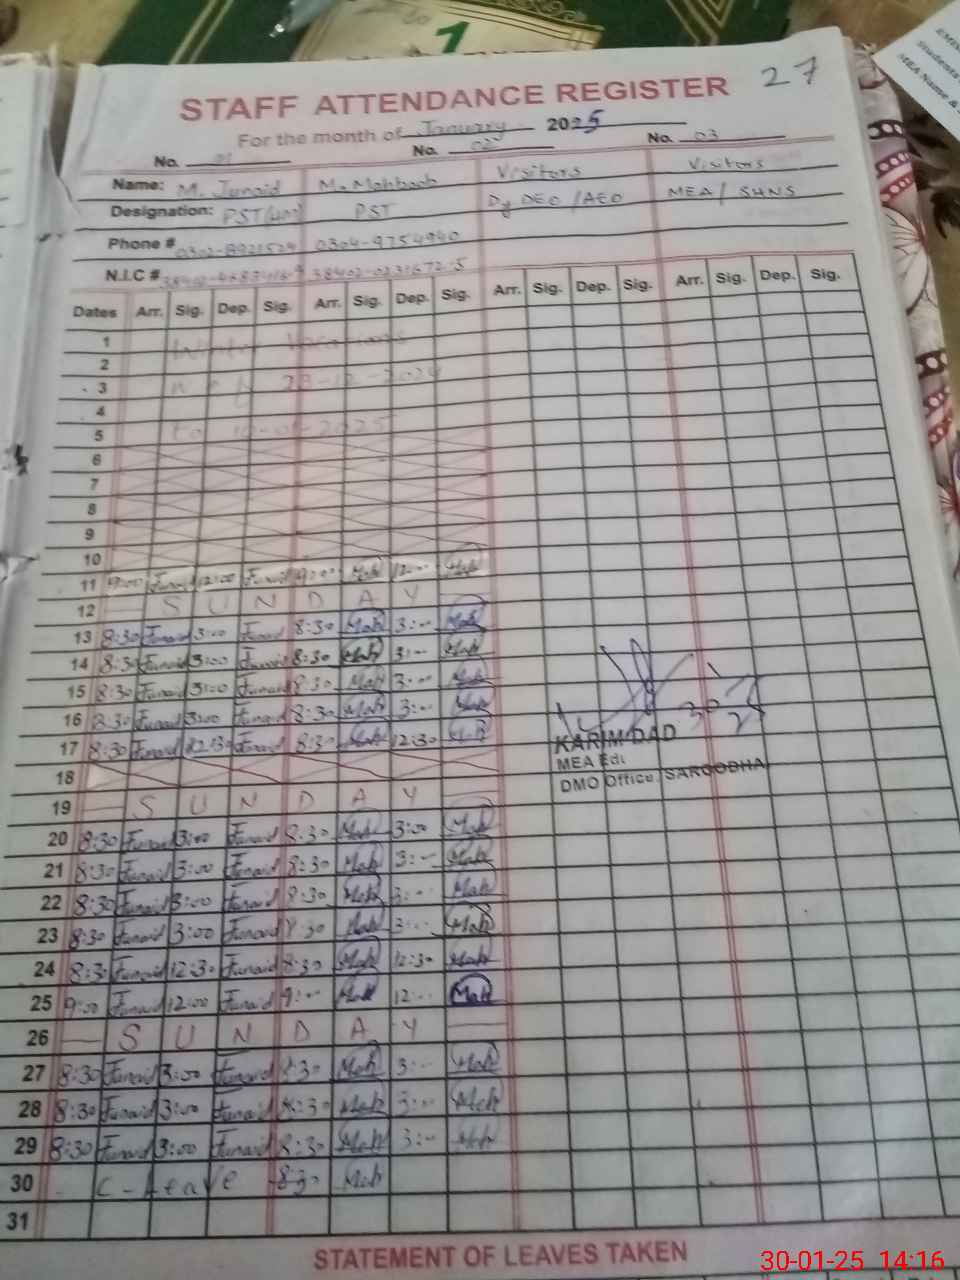 1
27
STAFF ATTENDANCE REGISTER
For the month of January 2025
No. 01 No. 02 No. 03
Name: M. Junaid M. Mahboob Visitors Visitors
Designation: PST PST Dy DEO / AEO MEA / SHNS
Phone # 0304-9754940
N.I.C #
Dates Arr. Sig. Dep. Sig. Arr. Sig. Dep. Sig. Arr. Sig. Dep. Sig. Arr. Sig. Dep. Sig.
1 Winter Vacations
2
3 w.e.f 23-12-2024
4
5 to 10-01-2025
6
7
8
9
10
11 9:00 Junaid 12:00 Junaid 9:00 Mah 12:-- Mah
12 SUNDAY
13 8:30 Junaid 3:00 Junaid 8:30 Mah 3:-- Mah
14 8:30 Junaid 3:00 Junaid 8:30 Mah 3:-- Mah
15 8:30 Junaid 3:00 Junaid 8:30 Mah 3:-- Mah
16 8:30 Junaid 3:00 Junaid 8:30 Mah 3:-- Mah
17 8:30 Junaid 12:30 Junaid 8:30 Mah 12:30 Mah
KARIM DAD
MEA Edu
DMO Office, SARGODHA
18
19 SUNDAY
20 8:30 Junaid 3:00 Junaid 8:30 Mah 3:00 Mah
21 8:30 Junaid 3:00 Junaid 8:30 Mah 3:-- Mah
22 8:30 Junaid 3:00 Junaid 8:30 Mah 3:-- Mah
23 8:30 Junaid 3:00 Junaid 8:30 Mah 3:-- Mah
24 8:30 Junaid 12:30 Junaid 8:30 Mah 12:30 Mah
25 9:00 Junaid 12:00 Junaid 9:-- Mah 12:-- Mah
26 SUNDAY
27 8:30 Junaid 3:00 Junaid 8:30 Mah 3:-- Mah
28 8:30 Junaid 3:00 Junaid 8:30 Mah 3:-- Mah
29 8:30 Junaid 3:00 Junaid 8:30 Mah 3:-- Mah
30 C-Leave 8:30 Mah
31
STATEMENT OF LEAVES TAKEN
30-01-25 14:16